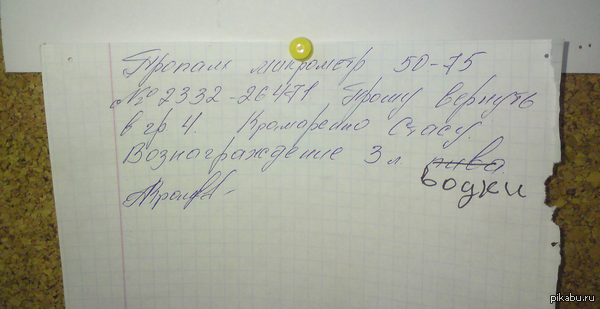 Пропал микрометр 50-75
№ 2332-26471 Прошу вернуть
в гр 4. Крамаренко Стасу.
Вознаграждение 3 л пива
водки
pikabu.ru